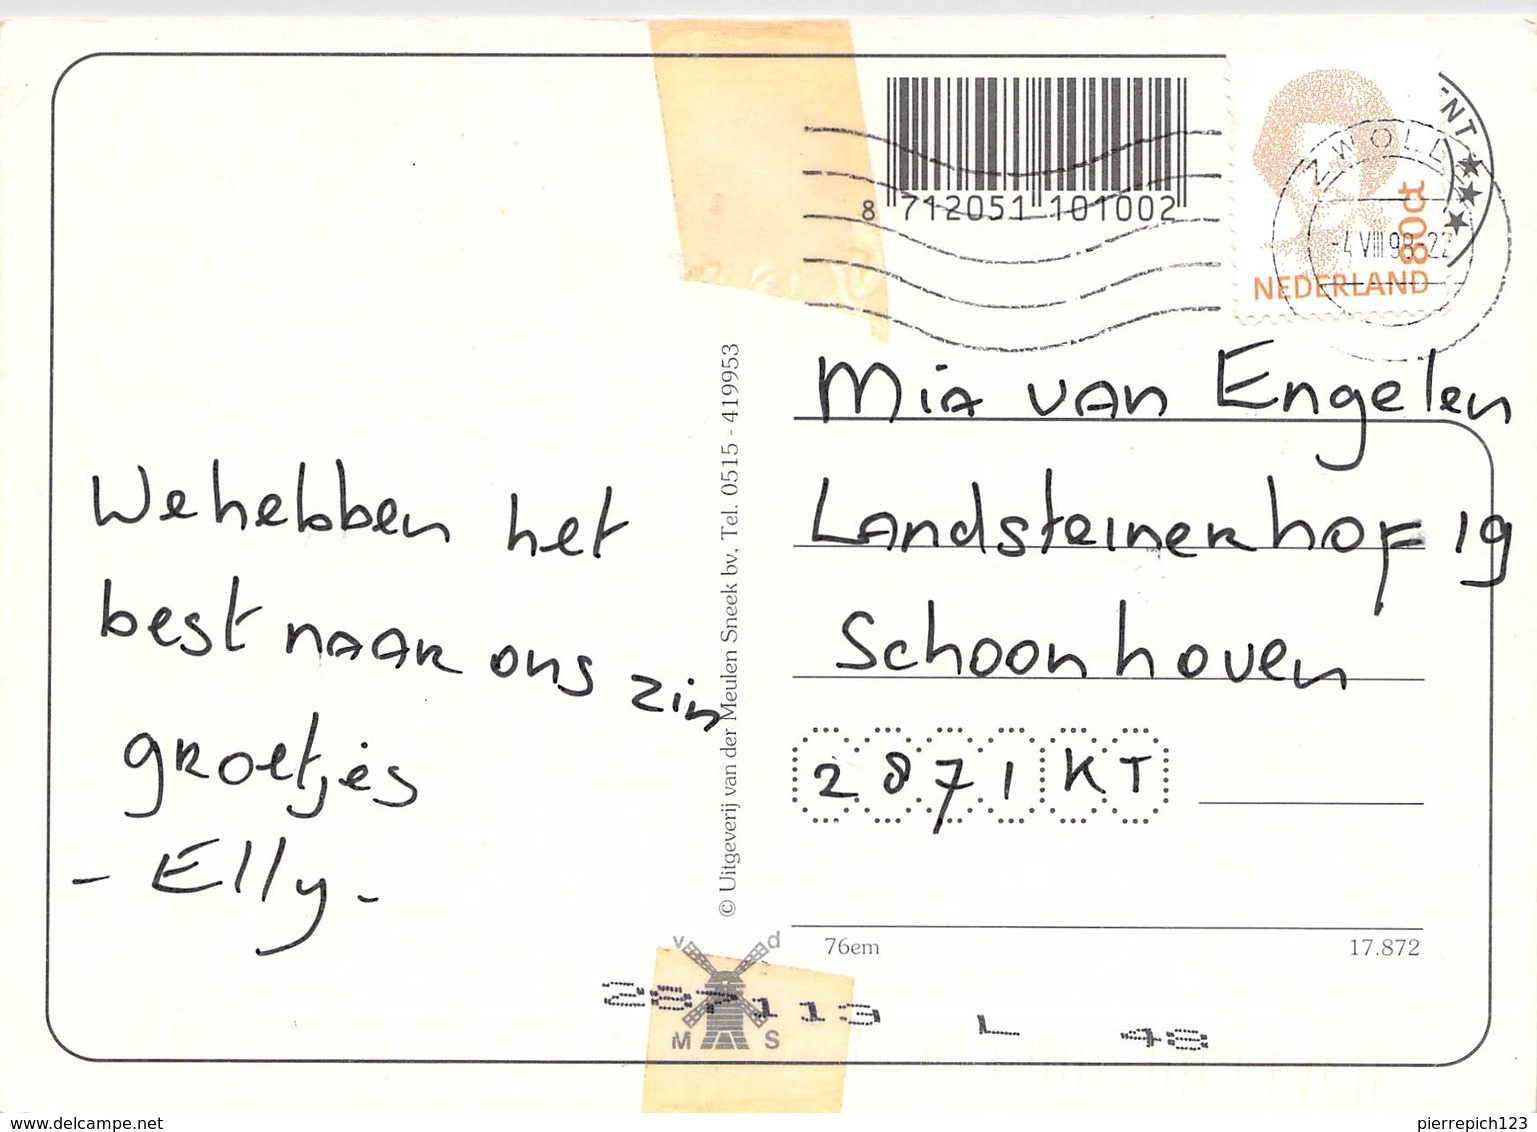 We hebben het
best naar ons zin
groetjes
- Elly -
© Uitgeverij van der Meulen Sneek bv, Tel. 0515 - 419953
v d
M S
8 712051 101002
ZWOLL
-4.VIII.98-22
80ct
NEDERLAND
Mia van Engelen
Landsteinerhof 19
Schoonhoven
2871 KT
76em 17.872
287113 L 48
www.delcampe.net pierrepich123